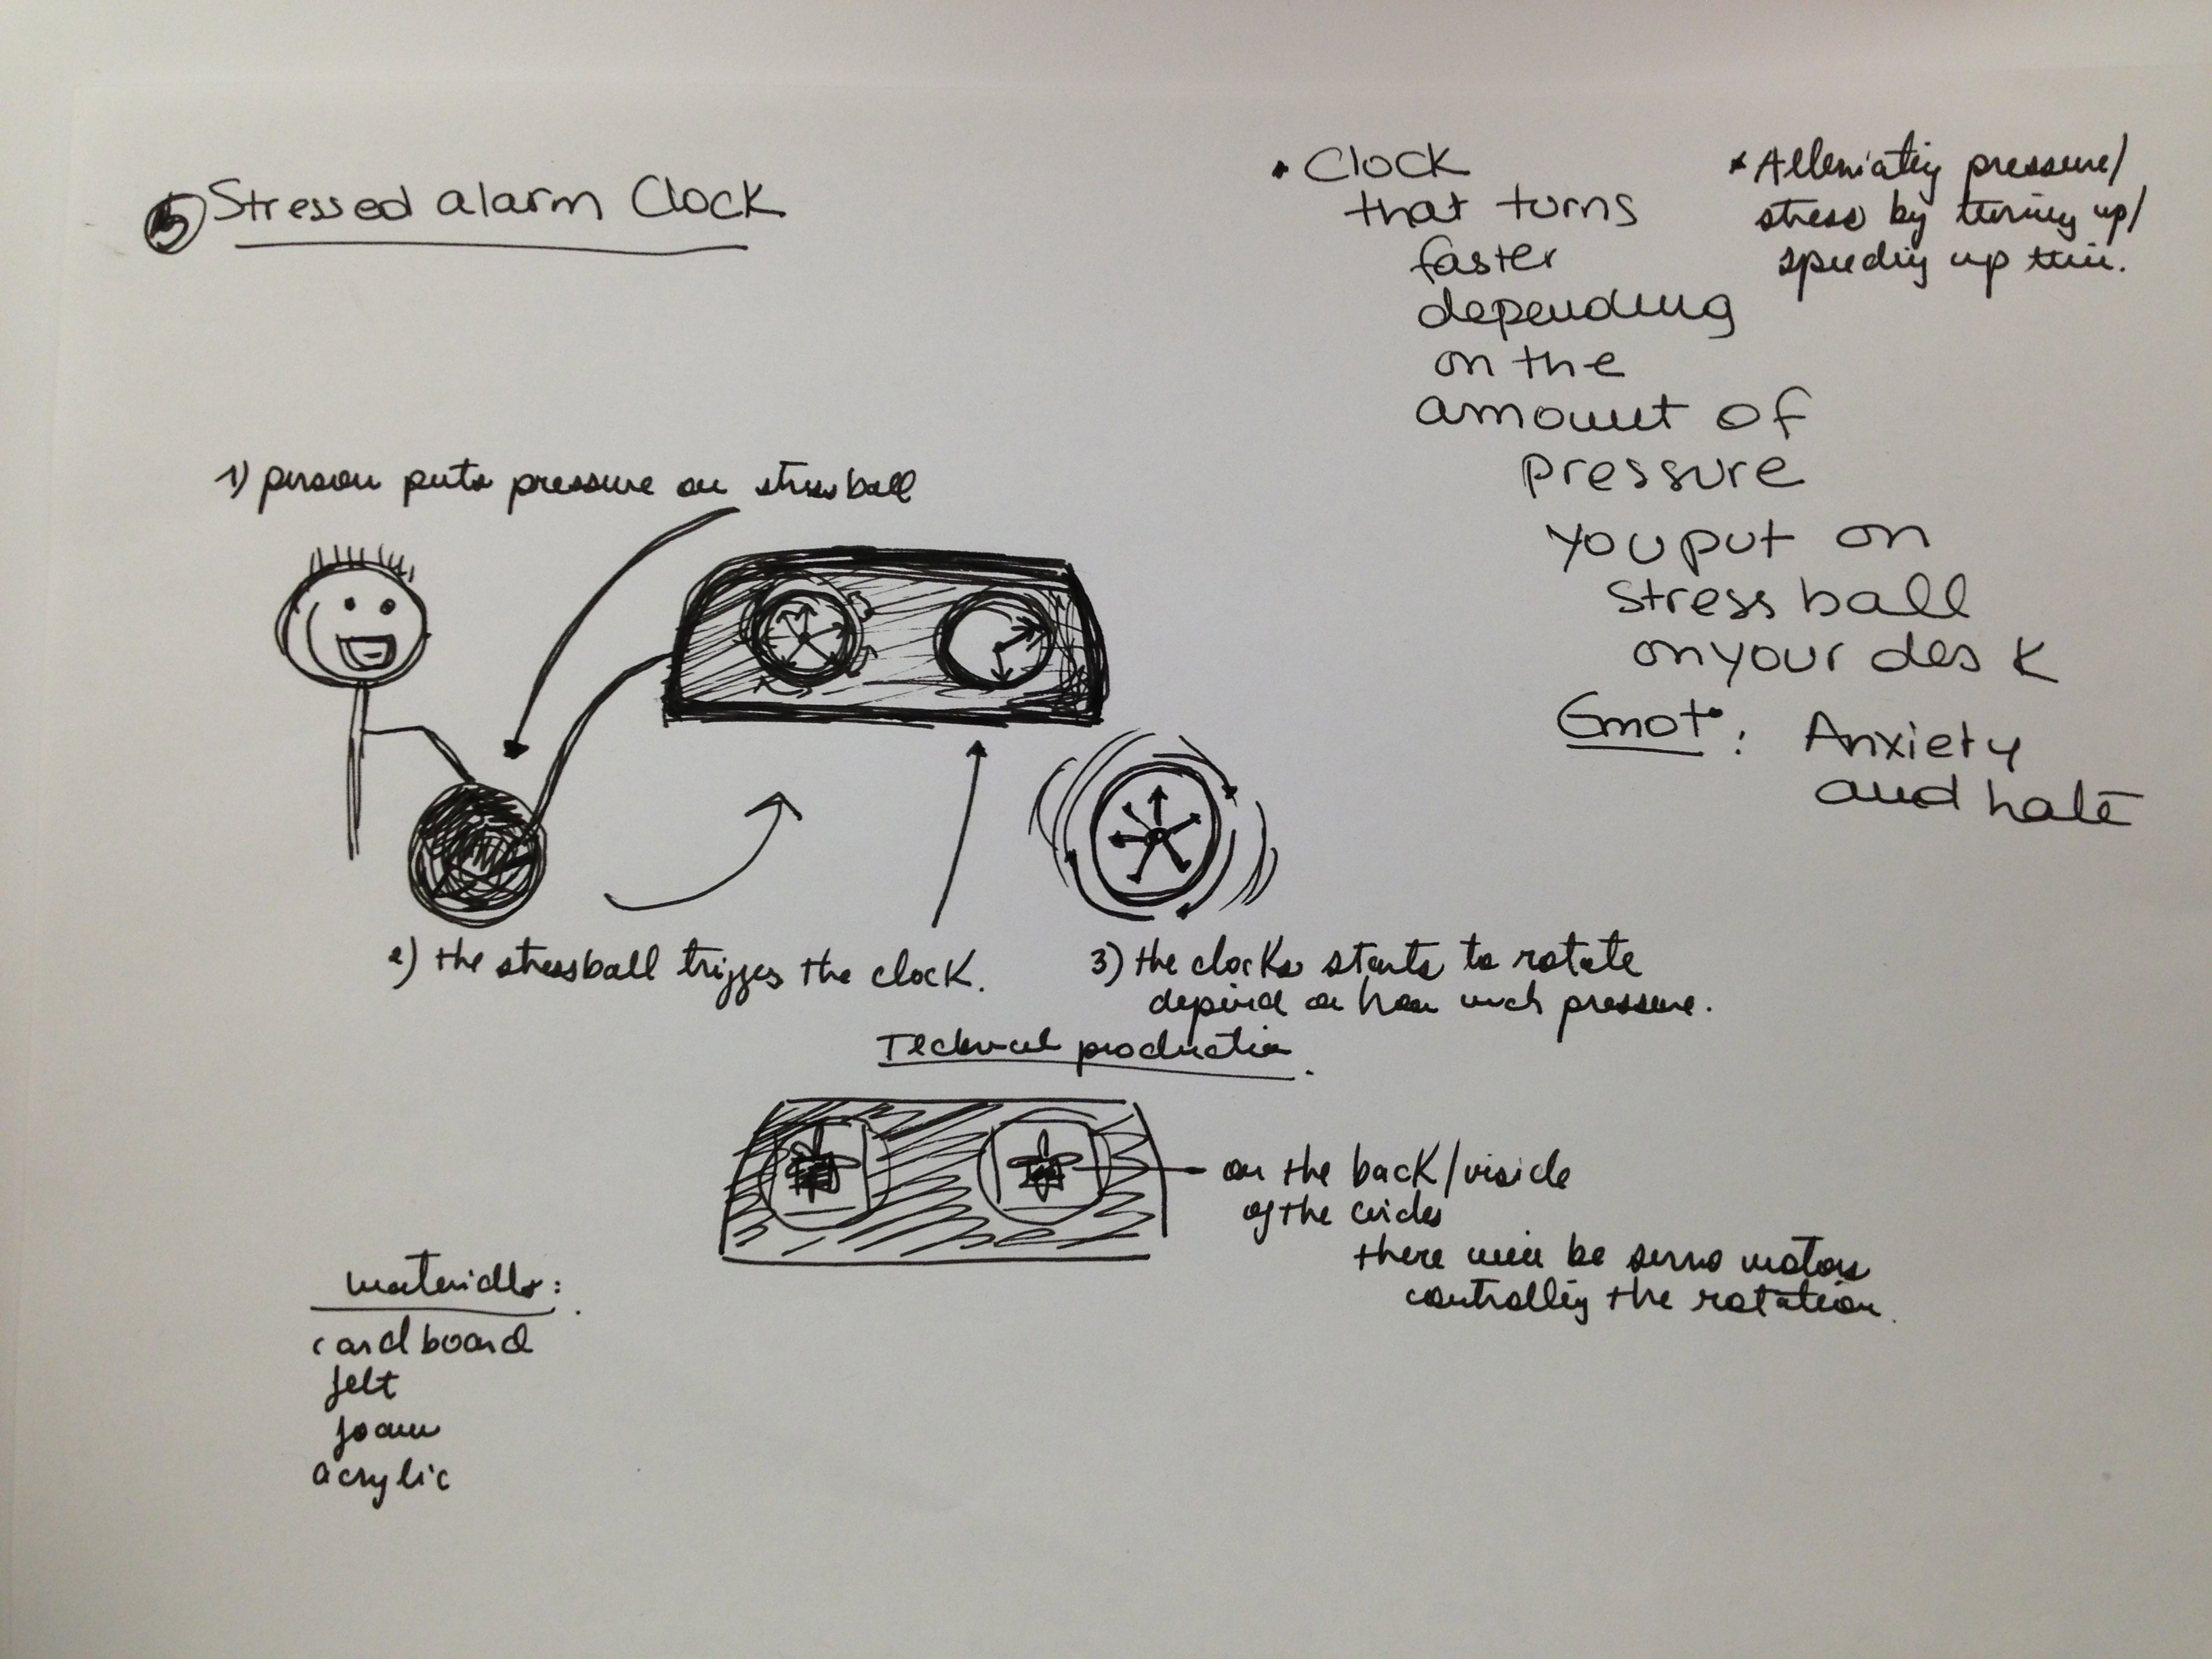 5 Stressed alarm Clock
• Clock
that turns
faster
depending
on the
amount of
pressure
you put on
stress ball
on your desk
Emot: Anxiety
and hate
* Alleviatig pressure/
stress by turning up/
speeding up time.
1) person puts pressure on stressball
2) the stressball trigges the clock.
3) the clocks starts to rotate
depend on how much pressure.
Technical production.
on the back/inside
of the circles
there will be servo motors
controlling the rotation.
materials:
cardboard
felt
foam
acrylic